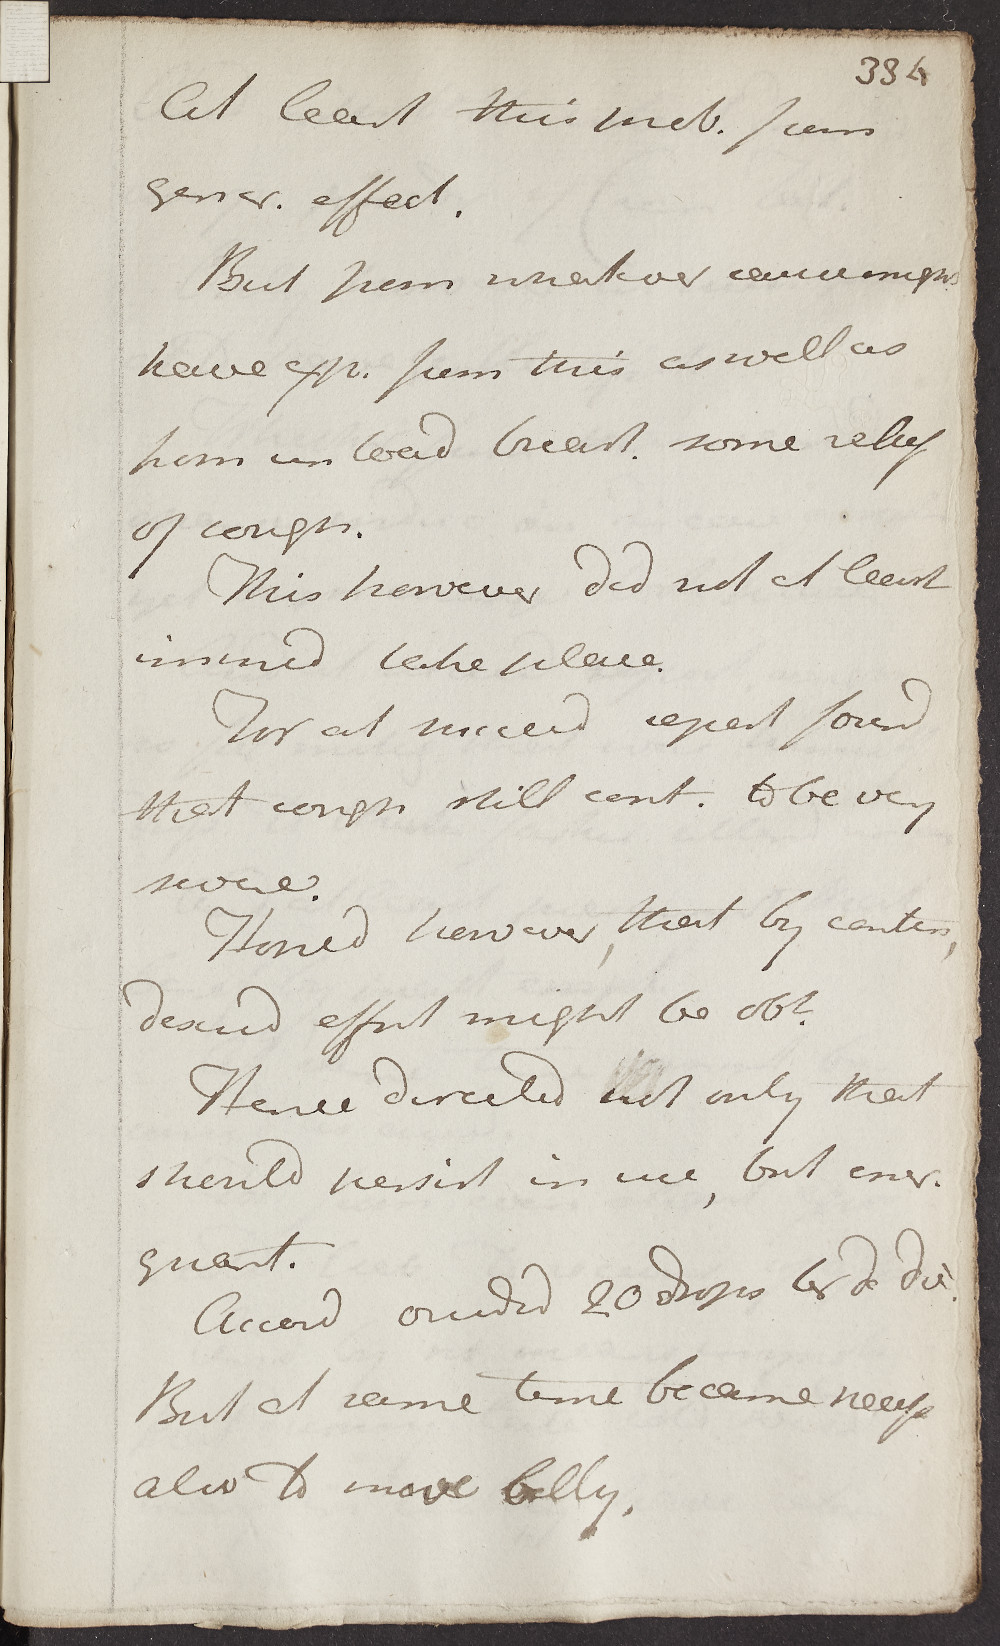 334
At least this prob. from
gener. effect.
But from whatever cause might
have exp. from this as well as
from un load breast. some relief
of cough.
This however did not at least
immed take place.
For at succeed report found
that cough still cont. to be very
severe.
Hoped however, that by contin,
desired effect might be obt.
Hence directed not only that
should persist in use, but incr.
quant.
Accord ordered 20 drops ter de die.
But at same time became necess
also to move belly.